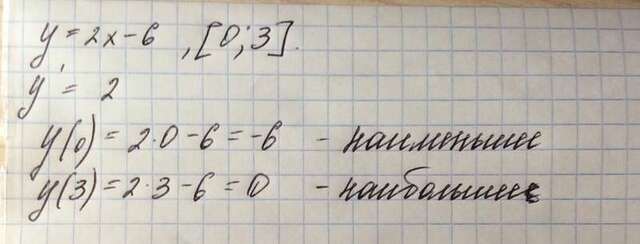 y = 2x - 6 , [0; 3].
y' = 2
y(0) = 2·0 - 6 = -6 - наименьшее
y(3) = 2·3 - 6 = 0 - наибольшее